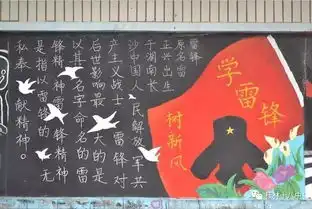 雷锋
原名雷
正兴出生
于湖南长
沙中国人民解放军共
产主义战士，雷锋对
后世影响最大的是
以其名字命名的雷
锋精神，雷锋精神
是指以雷锋的无
私奉献精神。
学雷锋
树新风